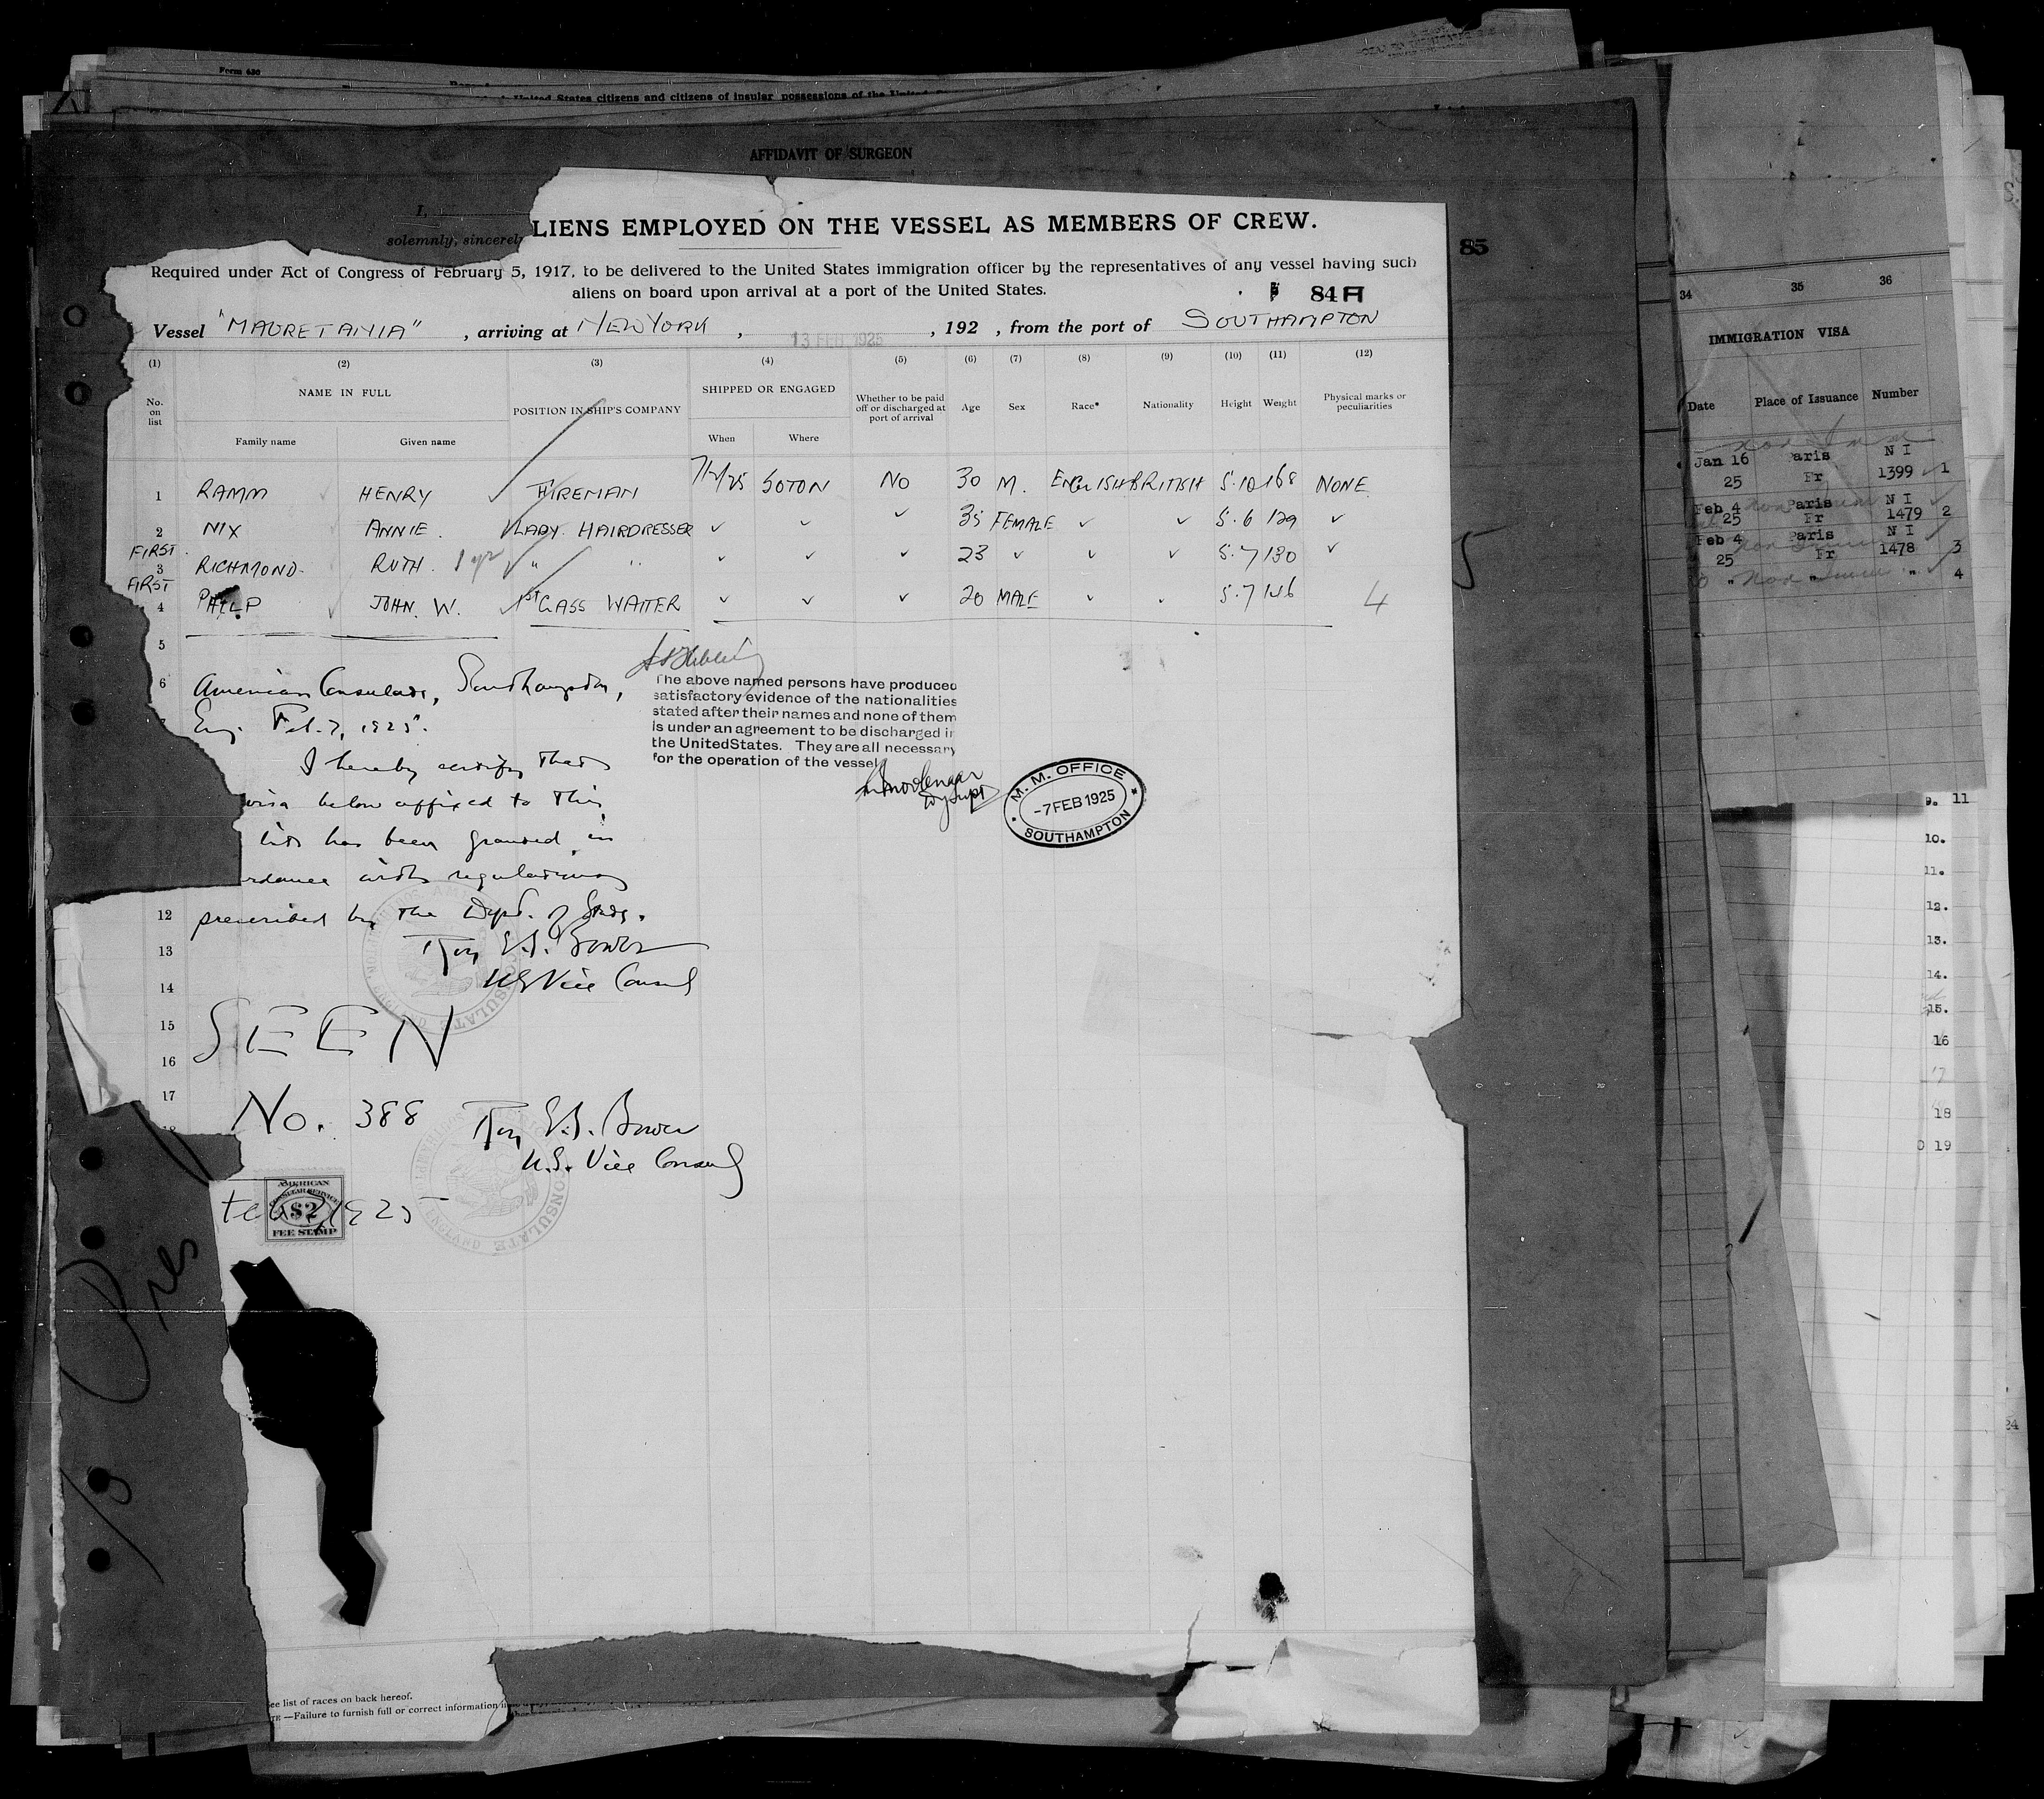 Form 630
United States citizens and citizens of insular possessions of the United
AFFIDAVIT OF SURGEON
I,
solemnly, sincerely
LIENS EMPLOYED ON THE VESSEL AS MEMBERS OF CREW.
85
Required under Act of Congress of February 5, 1917, to be delivered to the United States immigration officer by the representatives of any vessel having such
aliens on board upon arrival at a port of the United States.
84A
Vessel "MAURETANIA", arriving at NEW YORK, 13 FEB 1925, 192 , from the port of SOUTHAMPTON
(1) (2) (3) (4) (5) (6) (7) (8) (9) (10) (11) (12)
No. on list
NAME IN FULL
Family name Given name
POSITION IN SHIP'S COMPANY
SHIPPED OR ENGAGED
When Where
Whether to be paid off or discharged at port of arrival
Age Sex Race* Nationality Height Weight
Physical marks or peculiarities
1 RAMM HENRY ✓ FIREMAN 7/2/25 SOTON NO 30 M. ENGLISH BRITISH 5.10 168 NONE
2 NIX ANNIE. ✓ LADY HAIRDRESSER ✓ ✓ ✓ 35 FEMALE ✓ ✓ 5.6 129 ✓
FIRST
3 RICHMOND RUTH. 1 yr ✓ " " ✓ ✓ ✓ 23 ✓ ✓ ✓ 5.7 130 ✓
FIRST
4 PHILP JOHN. W. ✓ 1ST CLASS WAITER ✓ ✓ ✓ 20 MALE ✓ ✓ 5.7 146 4
5
5
6
American Consulate, Southampton,
Eng. Feb. 7, 1925.
I hereby certify that
visa below affixed to this
list has been granted in
rdance with regulations
12 prescribed by the Dept. of State.
13 Roy E.B. Bower
14 US Vice Consul
The above named persons have produced
satisfactory evidence of the nationalities
stated after their names and none of them
is under an agreement to be discharged in
the United States. They are all necessary
for the operation of the vessel
M. M. OFFICE
-7 FEB 1925
SOUTHAMPTON
15 SEEN
16
17
No. 388 Roy E.B. Bower
U.S. Vice Consul
AMERICAN
CONSULAR SERVICE
$2
FEE STAMP
Feb. 7, 1925
CONSULATE
ENGLAND
ee list of races on back hereof.
TE —Failure to furnish full or correct information
34 35 36
IMMIGRATION VISA
Date Place of Issuance Number
Jan 16 Paris N I
25 Fr 1399 1
Feb 4 Paris N I
25 Fr 1479 2
Feb 4 Paris N I
25 Fr 1478 3
" " " 4
9. 11
10.
11.
12.
13.
14.
15.
16
17
18
19
24